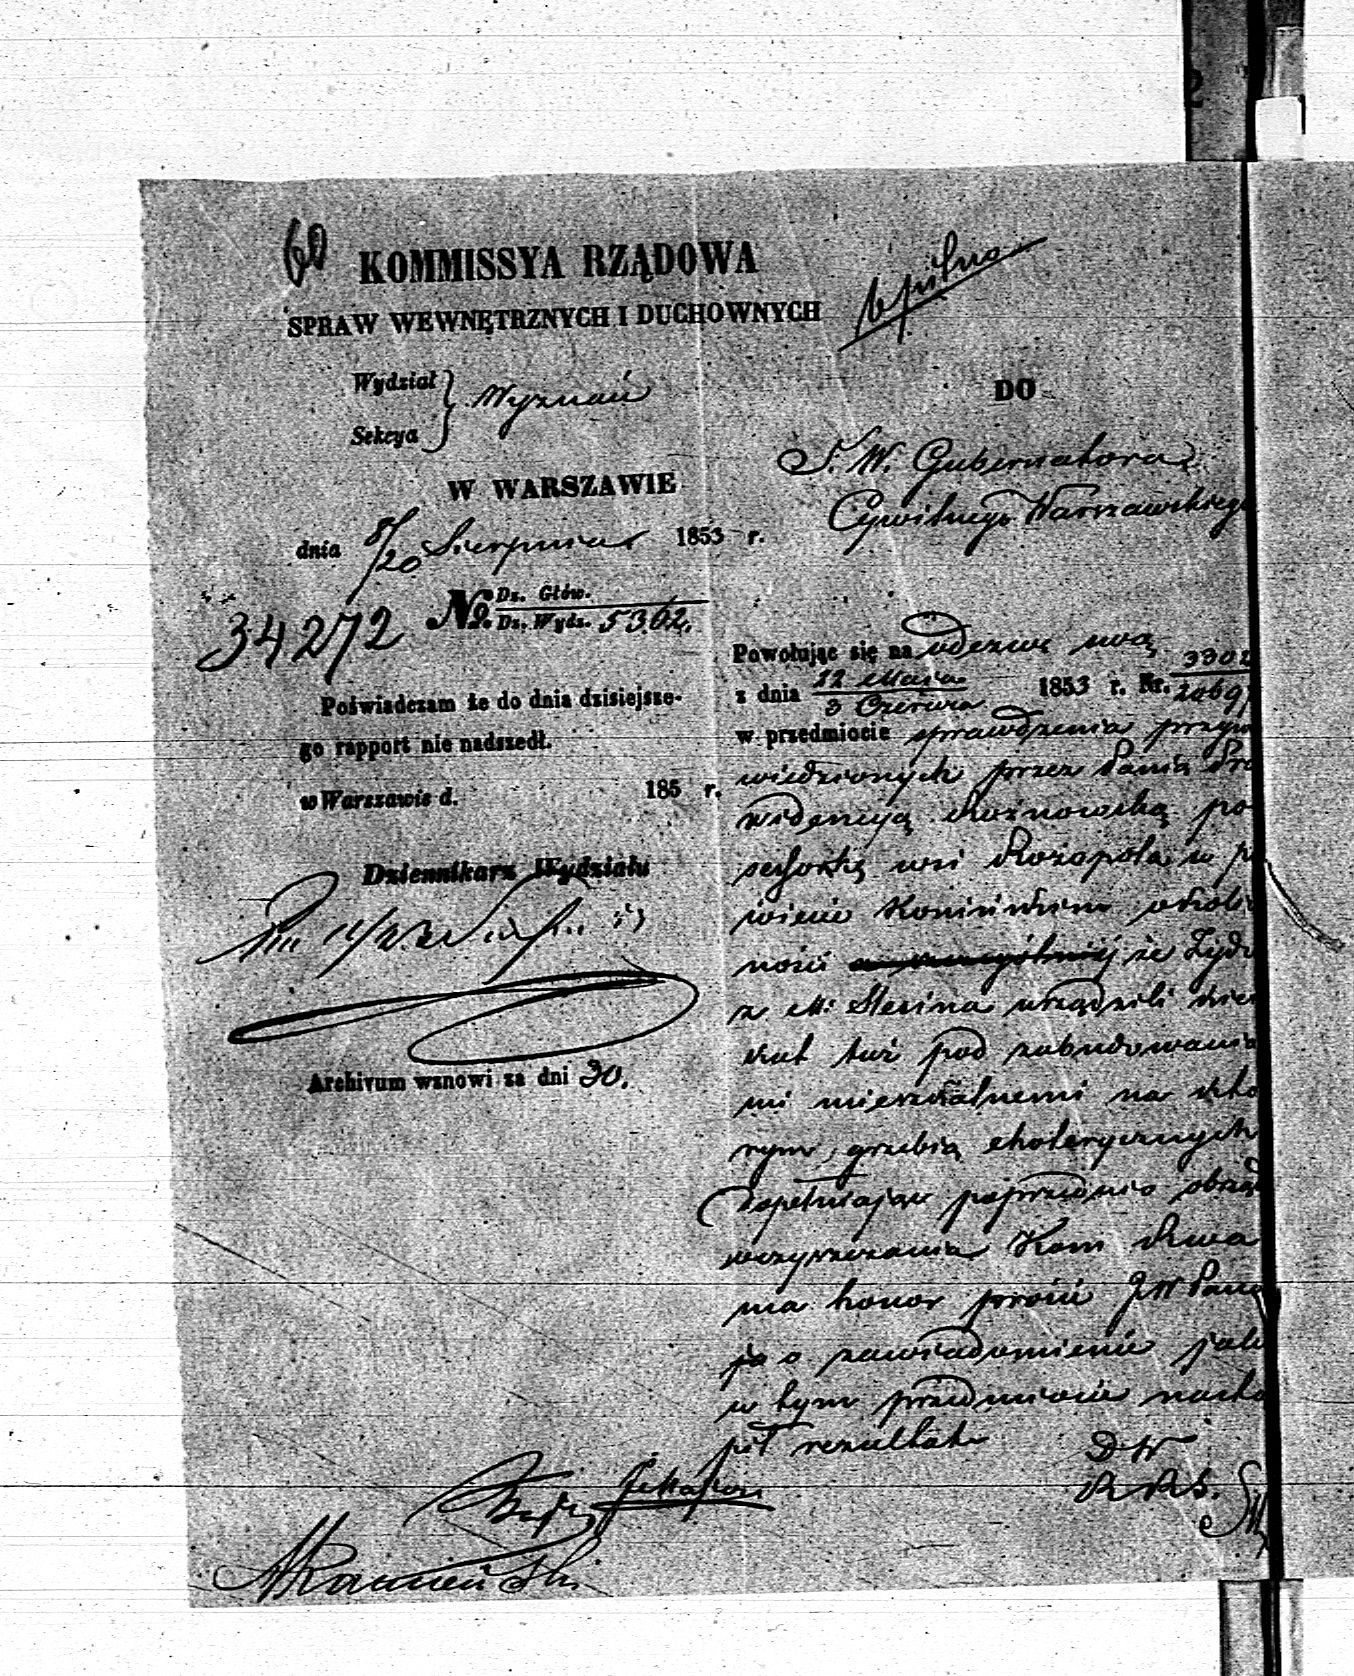 60
KOMMISSYA RZĄDOWA
SPRAW WEWNĘTRZNYCH I DUCHOWNYCH
b pilno
Wydział
Sekcya
Wyznań
W WARSZAWIE
dnia 8/20 Sierpnia 1853 r.
34272
No. Dz. Główn.
Dz. Wydz. 5362.
Poświadczam że do dnia dzisiejsze-
go rapport nie nadszedł.
w Warszawie d. 185 r.
Dziennikarz Wydziału
Archivum wznowi za dni 30.
DO
J. W. Gubernatora
Cywilnego Warszawskiego
Powołując się na odezwę swą
z dnia 22 Maja / 3 Czerwca 1853 r. Nr. 3302 / 20697
w przedmiocie sprawdzenia przyto
wiedzionych przez Panią Pro
widencyą Koźnowską po
sessorkę wsi Rozopola w po
wiecie Konińskim okolicz
ności że Żydzi
z M: Slesina urządzili kier
kut tuż pod zabudowania
mi mieszkalnemi na któ
rym grzebią cholerycznych
dopełniając poprzednio obrząd
oczyszczania Kom Rząd
ma honor prosić JW Pana
o zawiadomienie jaki
w tym przedmiocie nastą
pił rezultat
DW
R R S.
AKamieński